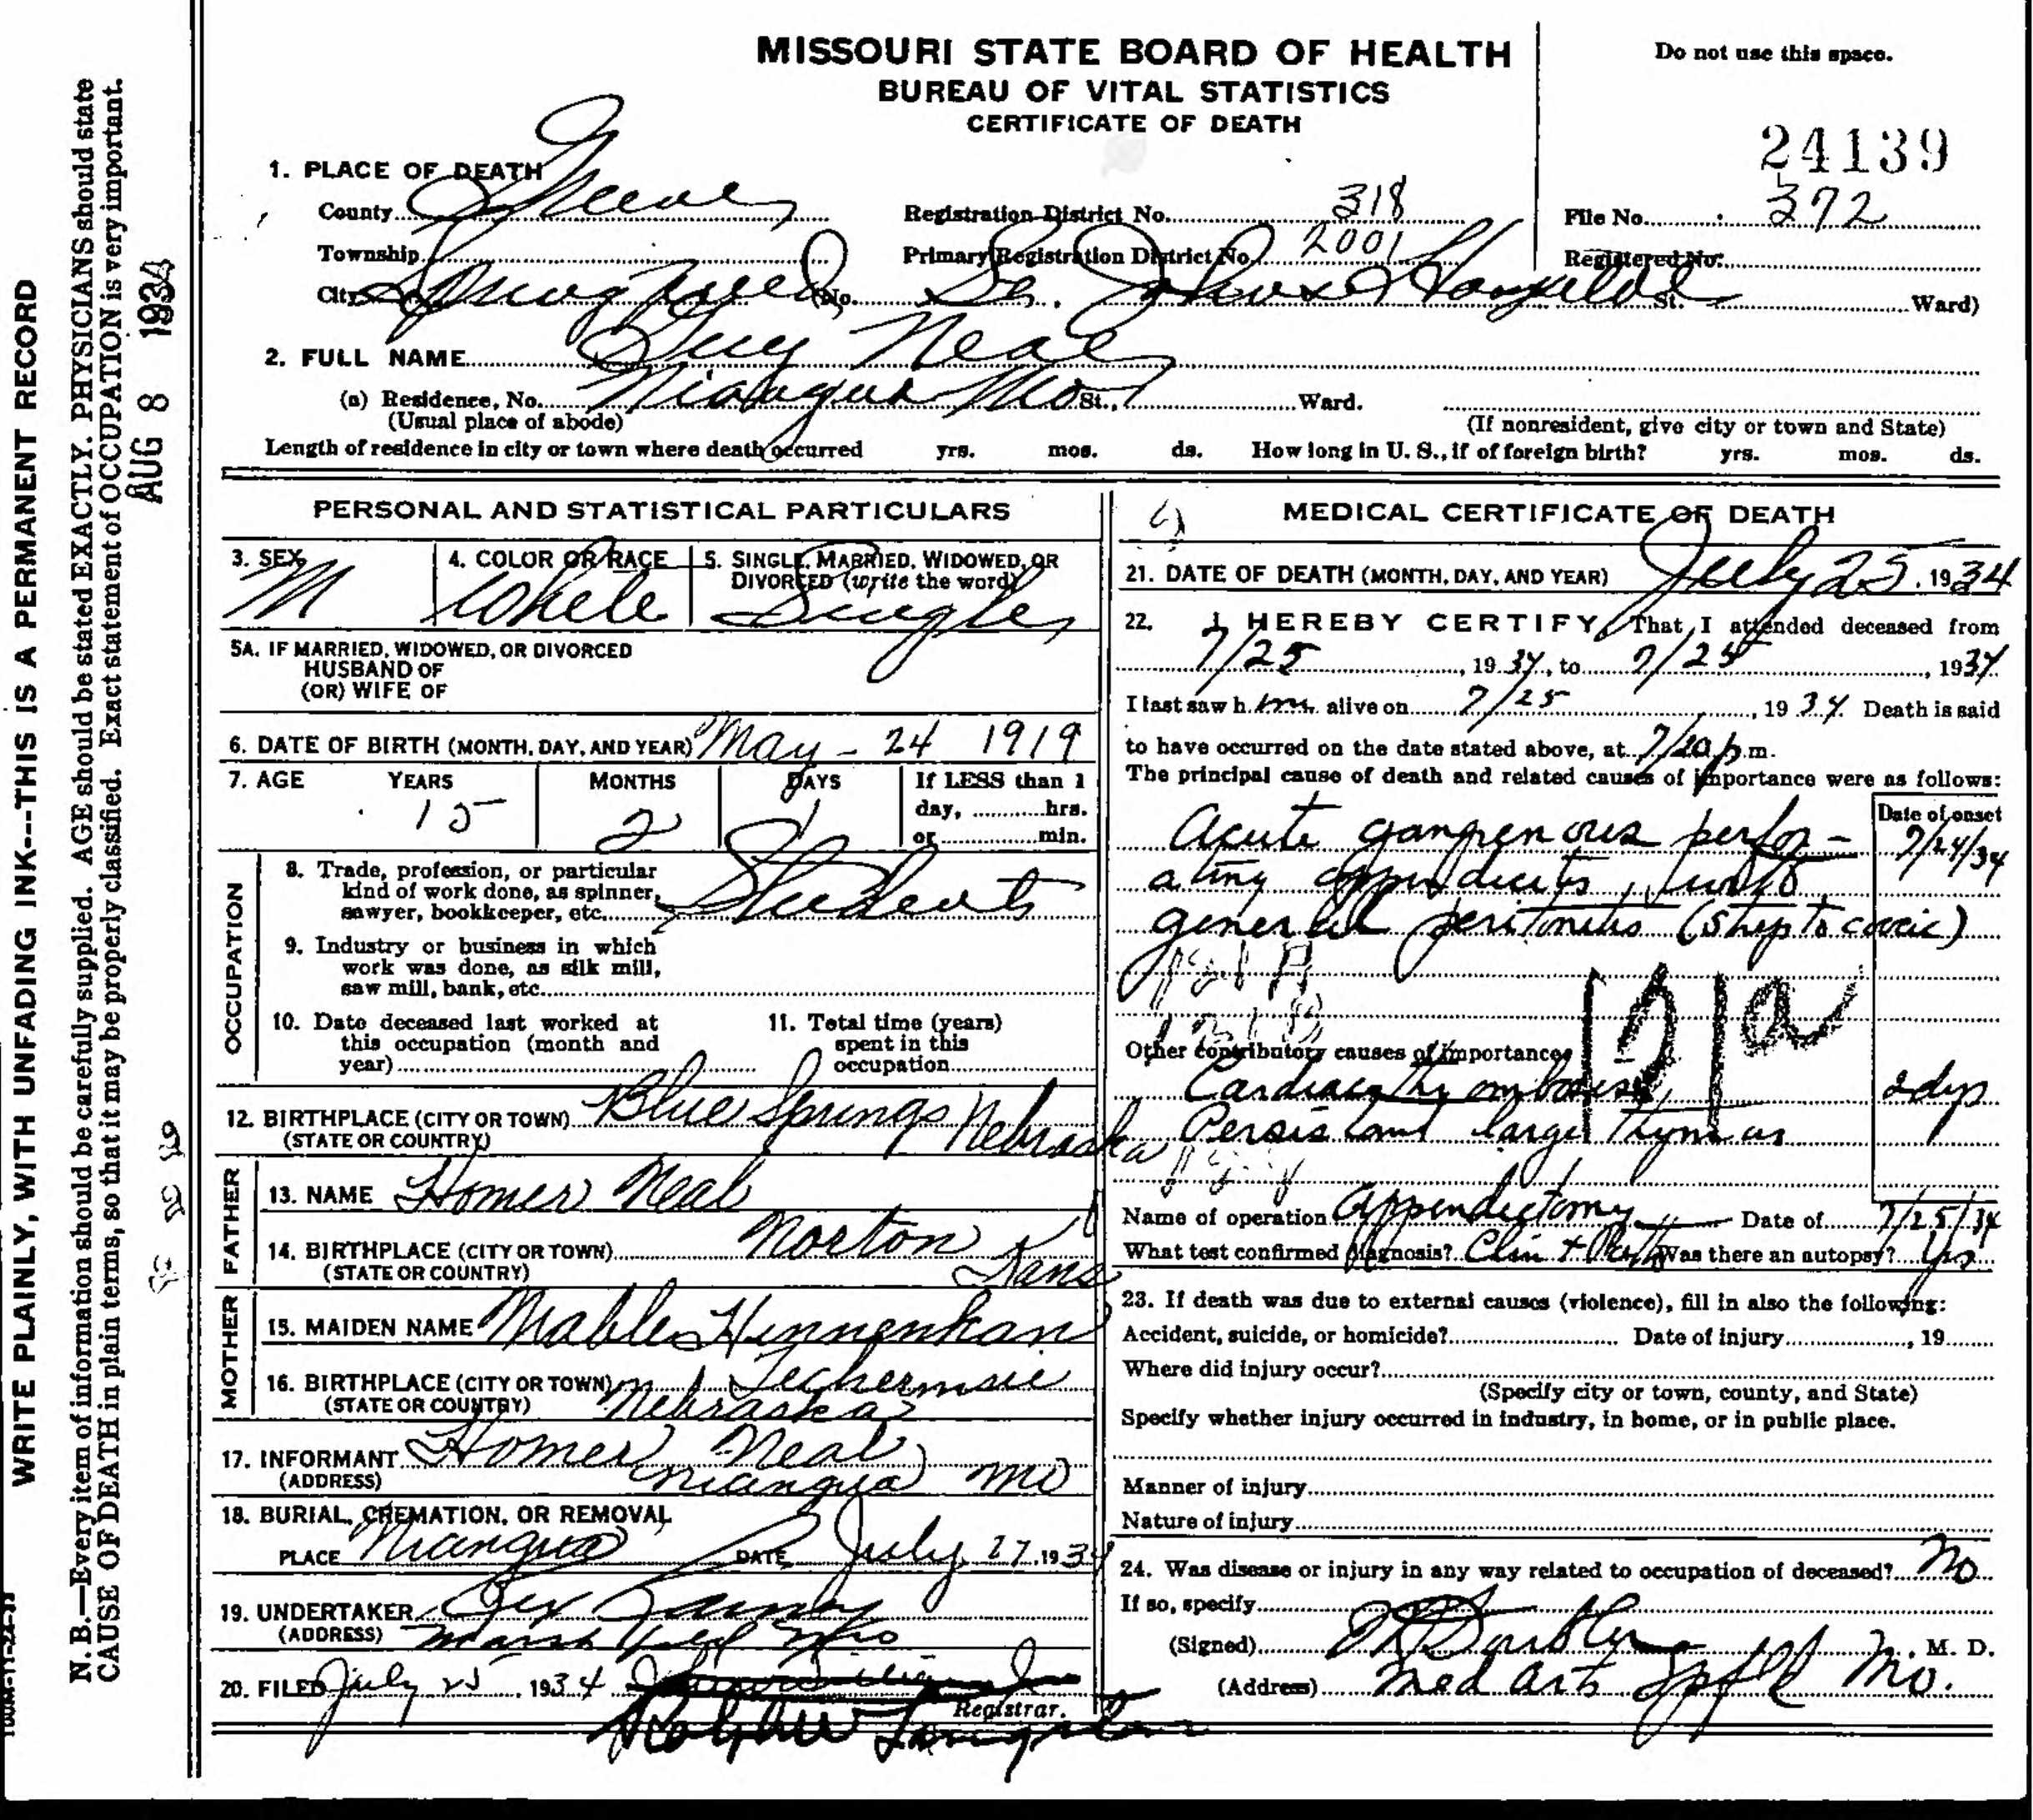 WRITE PLAINLY, WITH UNFADING INK---THIS IS A PERMANENT RECORD
N. B.—Every item of information should be carefully supplied. AGE should be stated EXACTLY. PHYSICIANS should state
CAUSE OF DEATH in plain terms, so that it may be properly classified. Exact statement of OCCUPATION is very important.
AUG 8 1934
MISSOURI STATE BOARD OF HEALTH
BUREAU OF VITAL STATISTICS
CERTIFICATE OF DEATH
Do not use this space.
24139
1. PLACE OF DEATH
County Greene Registration District No. 318 File No. 372
Township Primary Registration District No. 2001 Registered No.
City Springfield No. St. Johns Hospital St. Ward)
2. FULL NAME Guy Neal
(a) Residence, No. Niangua Mo St., Ward.
(Usual place of abode) (If nonresident, give city or town and State)
Length of residence in city or town where death occurred yrs. mos. ds. How long in U. S., if of foreign birth? yrs. mos. ds.
PERSONAL AND STATISTICAL PARTICULARS
3. SEX 4. COLOR OR RACE 5. SINGLE, MARRIED, WIDOWED, OR
DIVORCED (write the word)
M White Single
5A. IF MARRIED, WIDOWED, OR DIVORCED
HUSBAND OF
(OR) WIFE OF
6. DATE OF BIRTH (MONTH, DAY, AND YEAR) May - 24 1919
7. AGE YEARS MONTHS DAYS If LESS than 1
15 2 1 day, hrs.
or min.
OCCUPATION
8. Trade, profession, or particular
kind of work done, as spinner,
sawyer, bookkeeper, etc. Student
9. Industry or business in which
work was done, as silk mill,
saw mill, bank, etc.
10. Date deceased last worked at
this occupation (month and
year)
11. Total time (years)
spent in this
occupation
12. BIRTHPLACE (CITY OR TOWN) Blue Springs Nebraska
(STATE OR COUNTRY)
FATHER
13. NAME Homer Neal
14. BIRTHPLACE (CITY OR TOWN) Norton
(STATE OR COUNTRY) Kans
MOTHER
15. MAIDEN NAME Mable Hinnenkan
16. BIRTHPLACE (CITY OR TOWN) Techermsie
(STATE OR COUNTRY) Nebraska
17. INFORMANT Homer Neal
(ADDRESS) Niangua Mo
18. BURIAL, CREMATION, OR REMOVAL
PLACE Niangua DATE July 27, 1934
19. UNDERTAKER
(ADDRESS) Marshfield Mo
20. FILED July 25, 1934
Registrar.
MEDICAL CERTIFICATE OF DEATH
21. DATE OF DEATH (MONTH, DAY, AND YEAR) July 25, 1934
22. I HEREBY CERTIFY, That I attended deceased from
7/25, 1934, to 7/25, 1934
I last saw him alive on 7/25, 1934. Death is said
to have occurred on the date stated above, at 7/20 p. m.
The principal cause of death and related causes of importance were as follows:
Date of onset
Acute gangrenous perfor- 7/24/34
ating appendicitis, with
general peritonitis (streptococcic)
121A
121a
Other contributory causes of importance:
Cardiac thrombosis, 2 dys
Persistant large thymus
Name of operation Appendectomy Date of 7/25/34
What test confirmed diagnosis? Clin + Path Was there an autopsy? Yes
23. If death was due to external causes (violence), fill in also the following:
Accident, suicide, or homicide? Date of injury , 19
Where did injury occur?
(Specify city or town, county, and State)
Specify whether injury occurred in industry, in home, or in public place.
Manner of injury
Nature of injury
24. Was disease or injury in any way related to occupation of deceased? No
If so, specify
(Signed) , M. D.
(Address) Med Arts Spfld Mo.